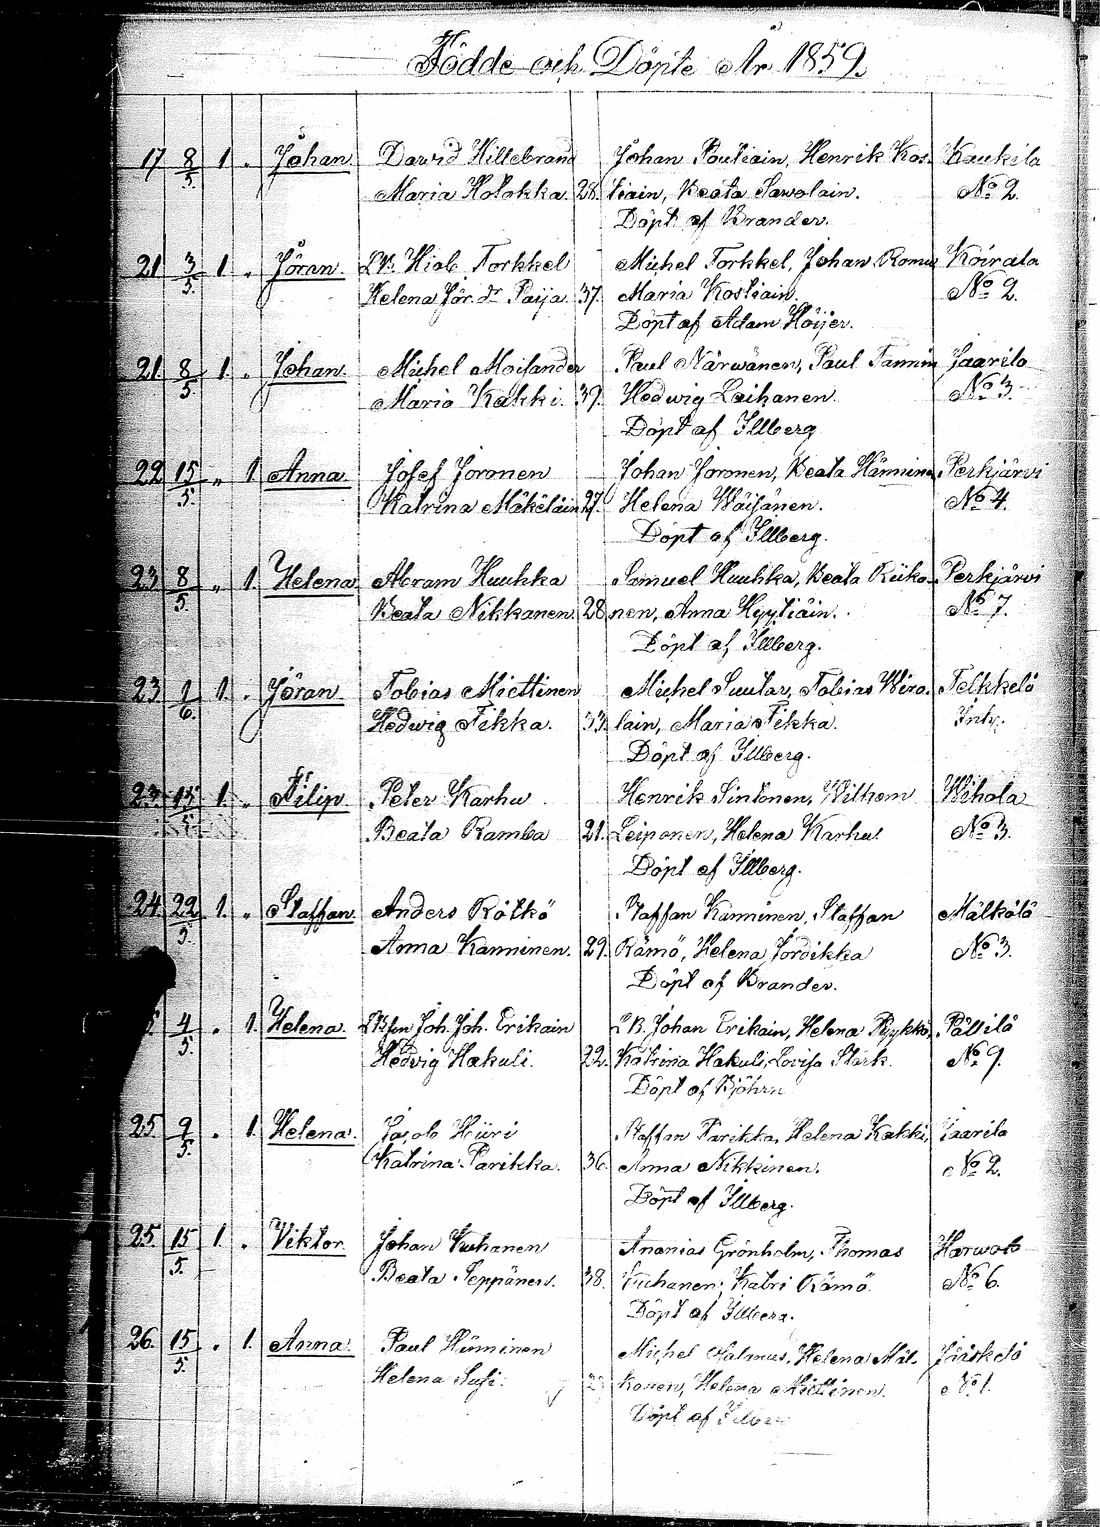 Födde och Döpte År 1859.
17 8/5. 1 „ Johan David Hillebrand Johan Pouliain, Henrik Kos- Kaukila
Maria Holokka. 28. tiain, Beata Sawolain. No 2.
Döpt af Brander.
21 3/5. 1 „ Jöran. Hiob Torkkel Michel Torkkel, Johan Romu Koirala
Helena Jör. dr Paija. 37. Maria Kostiain. No 2.
Döpt af Adam Höijer.
21 8/5. 1. „ Johan Michel Moilander Paul Närwänen, Paul Tannin Jaarila
Maria Kakki. 39. Hedwig Laihanen No 3.
Döpt af Illberg
22 15/5. „ 1 Anna. Josef Joronen Johan Joronen, Beata Hännine Perkjärvi
Katrina Mäkeläin 27. Helena Wäisänen. No 4.
Döpt af Illberg.
23 8/5. „ 1. Helena Abram Huuhka Samuel Huuhka, Beata Riiko- Perkjärvi
Beata Nikkanen. 28 nen, Anna Hyytiäin. No 7.
Döpt af Illberg.
23 1/6. 1. „ Jöran. Tobias Miettinen Michel Suutar, Tobias Wiro- Telkkelä
Hedwig Tikka. 33. lain, Maria Tikka. Inh.
Döpt af Illberg.
23 15/5 1. „ Filip Peter Karhu Henrik Sintonen, Wilhem Wihola
Beata Ramba 21. Leiponen, Helena Karhu No 3.
Döpt af Illberg.
24 22/5. 1. „ Staffan. Anders Rätkö Staffan Kanninen, Staffan Mälkölä
Anna Kanninen. 29. Rämö, Helena Jördikka No 3.
Döpt af Brander.
4/5. „ 1. Helena. Joh. Joh. Erikain Johan Erikain, Helena Pykkö, Pällilä
Hedvig Hakuli. 22. Katrina Hakuli, Lovisa Stark. No 9.
Döpt af Björhn
25 9/5. „ 1. Helena. Jacob Hiiri Staffan Parikka, Helena Kakki, Jaarila
Katrina Parikka. 36. Anna Nikkinen. No 2.
Döpt af Illberg.
25. 15/5. 1. „ Viktor Johan Kuhanen Ananias Grönholm, Thomas Harwola
Beata Seppänen. 38. Kuhanen, Katri Rämö No 6.
Döpt af Illberg.
26. 15/5. „ 1. Anna. Paul Hänninen Michel Salmus, Helena Mäl- Jääskelä
Helena Susi. konen, Helena Miettinen. No 1.
Döpt af Illberg